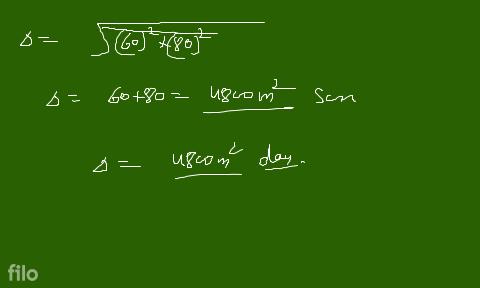 s = √(60)² + (80)²
s = 60+80 = 4800m²
s = 4800m² day.
filo